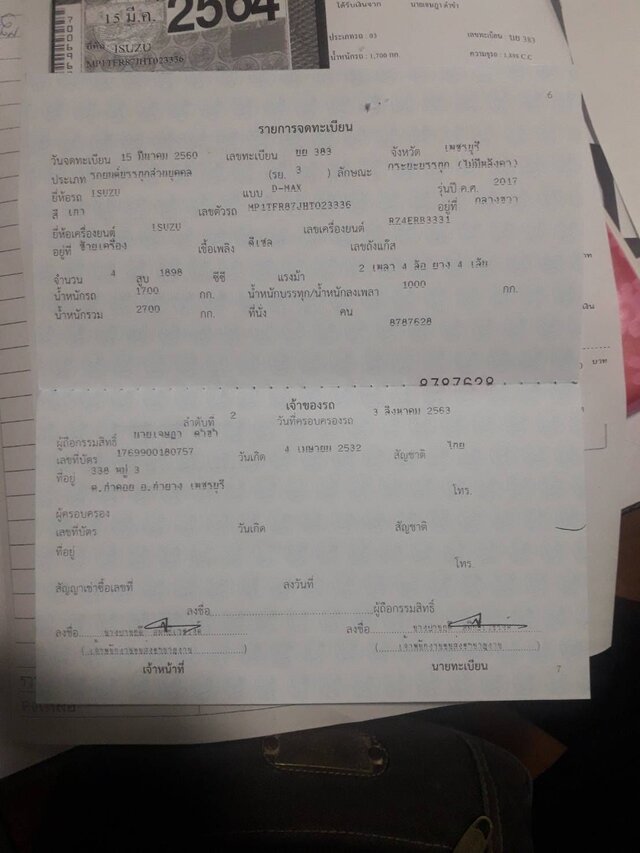 15 มี.ค. 2564
ISUZU
MP1TFR87JHT023336
ได้รับเงินจาก นายเจษฎา ดำขำ
ประเภทรถ : 03 เลขทะเบียน บย 383
น้ำหนักรถ : 1,700 กก. ความจุรถ : 1,898 C.C
6
รายการจดทะเบียน
วันจดทะเบียน 15 มีนาคม 2560 เลขทะเบียน บย 383 จังหวัด เพชรบุรี
ประเภท รถยนต์บรรทุกส่วนบุคคล (รย. 3 ) ลักษณะ กระบะบรรทุก (ไม่มีหลังคา)
ยี่ห้อรถ ISUZU แบบ D-MAX รุ่นปี ค.ศ. 2017
สี เทา เลขตัวรถ MP1TFR87JHT023336 อยู่ที่ กลางขวา
ยี่ห้อเครื่องยนต์ ISUZU เลขเครื่องยนต์ RZ4ERB3331
อยู่ที่ ซ้ายเครื่อง เชื้อเพลิง ดีเซล เลขถังแก๊ส
จำนวน 4 สูบ 1898 ซีซี แรงม้า 2 เพลา 4 ล้อ ยาง 4 เส้น
น้ำหนักรถ 1700 กก. น้ำหนักบรรทุก/น้ำหนักลงเพลา 1000 กก.
น้ำหนักรวม 2700 กก. ที่นั่ง คน
8787628
8787628
เจ้าของรถ
ลำดับที่ 2 วันที่ครอบครองรถ 3 สิงหาคม 2563
ผู้ถือกรรมสิทธิ์ นายเจษฎา ดำขำ
เลขที่บัตร 1769900180757 วันเกิด 4 เมษายน 2532 สัญชาติ ไทย
ที่อยู่ 338 หมู่ 3
ต.ท่าคอย อ.ท่ายาง เพชรบุรี
โทร.
ผู้ครอบครอง
เลขที่บัตร วันเกิด สัญชาติ
ที่อยู่
โทร.
สัญญาเช่าซื้อเลขที่ ลงวันที่
ลงชื่อ ผู้ถือกรรมสิทธิ์
ลงชื่อ ลงชื่อ
(เจ้าพนักงานขนส่งชำนาญงาน) (เจ้าพนักงานขนส่งชำนาญงาน)
เจ้าหน้าที่ นายทะเบียน
7
บาท